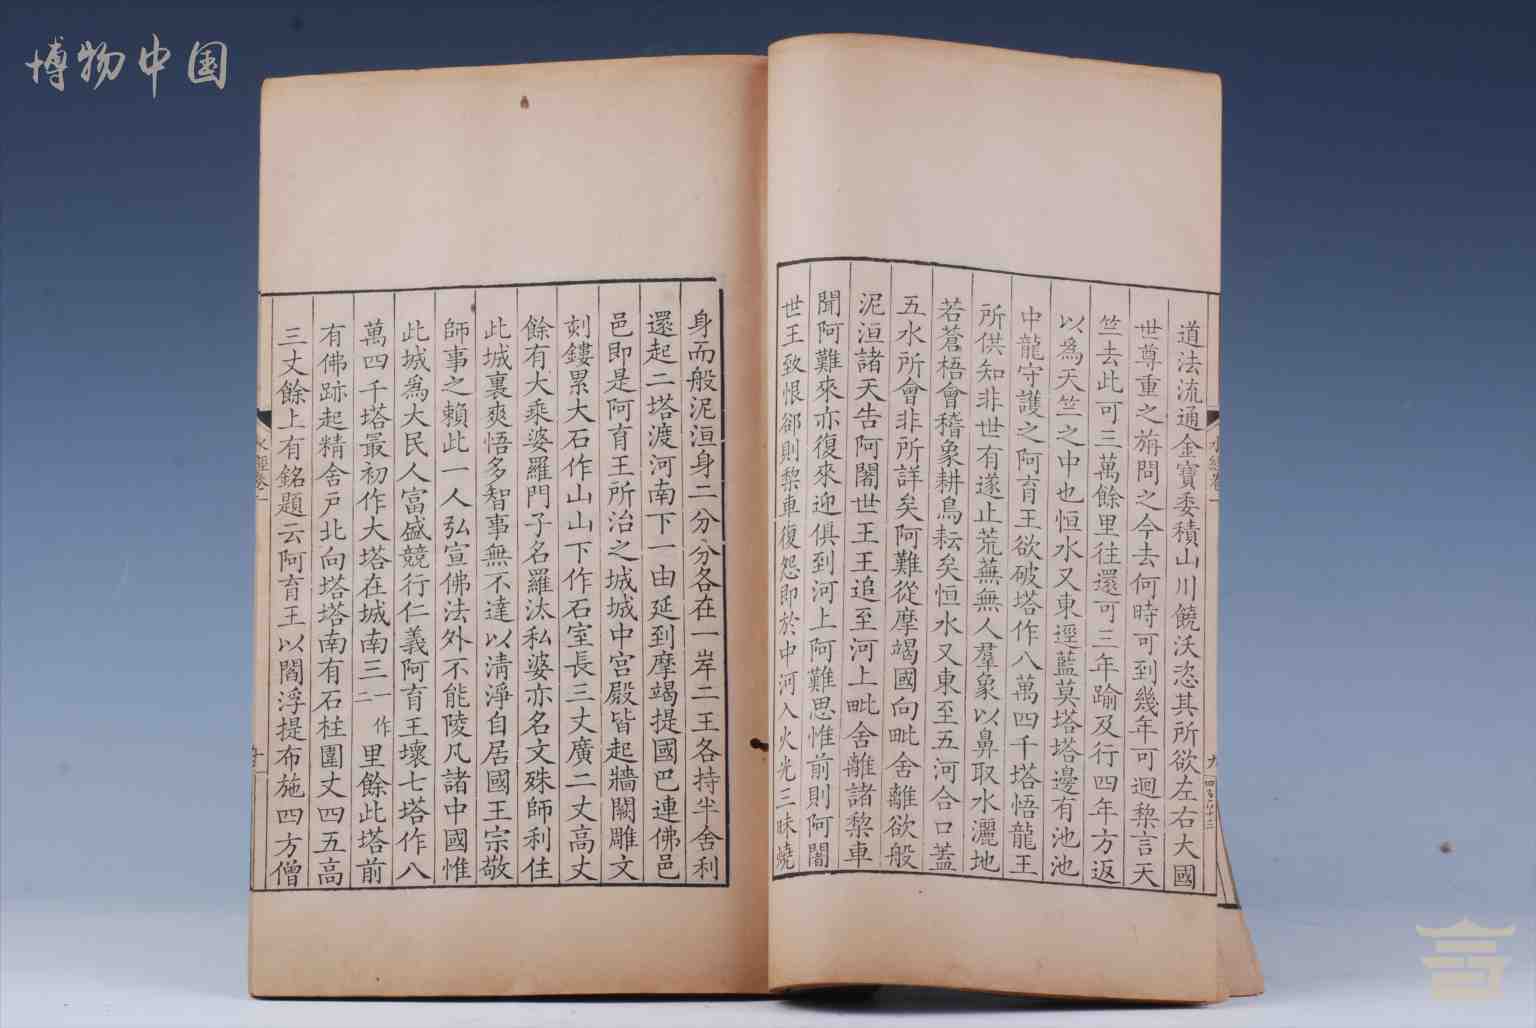 博物中国
道法流通金寶委積山川饒沃恣其所欲左右大國
世尊重之旃問之今去何時可到幾年可迴棃言天
竺去此可三萬餘里往還可三年踰及行四年方返
以爲天竺之中也恒水又東逕藍莫塔塔邊有池池
中龍守護之阿育王欲破塔作八萬四千塔悟龍王
所供知非世有遂止荒蕪無人羣象以鼻取水灑地
若蒼梧會稽象耕鳥耘矣恒水又東至五河合口蓋
五水所會非所詳矣阿難從摩竭國向毗舍離欲般
泥洹諸天告阿闍世王王追至河上毗舍離諸棃車
聞阿難來亦復來迎俱到河上阿難思惟前則阿闍
世王致恨郤則棃車復怨即於中河入火光三昧燒
身而般泥洹身二分分各在一岸二王各持半舍利
還起二塔渡河南下一由延到摩竭提國巴連佛邑
邑即是阿育王所治之城城中宮殿皆起牆闕雕文
刻鏤累大石作山山下作石室長三丈廣二丈高丈
餘有大乘婆羅門子名羅汰私婆亦名文殊師利住
此城裏爽悟多智事無不達以清淨自居國王宗敬
師事之賴此一人弘宣佛法外不能陵凡諸中國惟
此城爲大民人富盛競行仁義阿育王壞七塔作八
萬四千塔最初作大塔在城南三一作二里餘此塔前
有佛跡起精舍戶北向塔塔南有石柱圍丈四五高
三丈餘上有銘題云阿育王以閻浮提布施四方僧